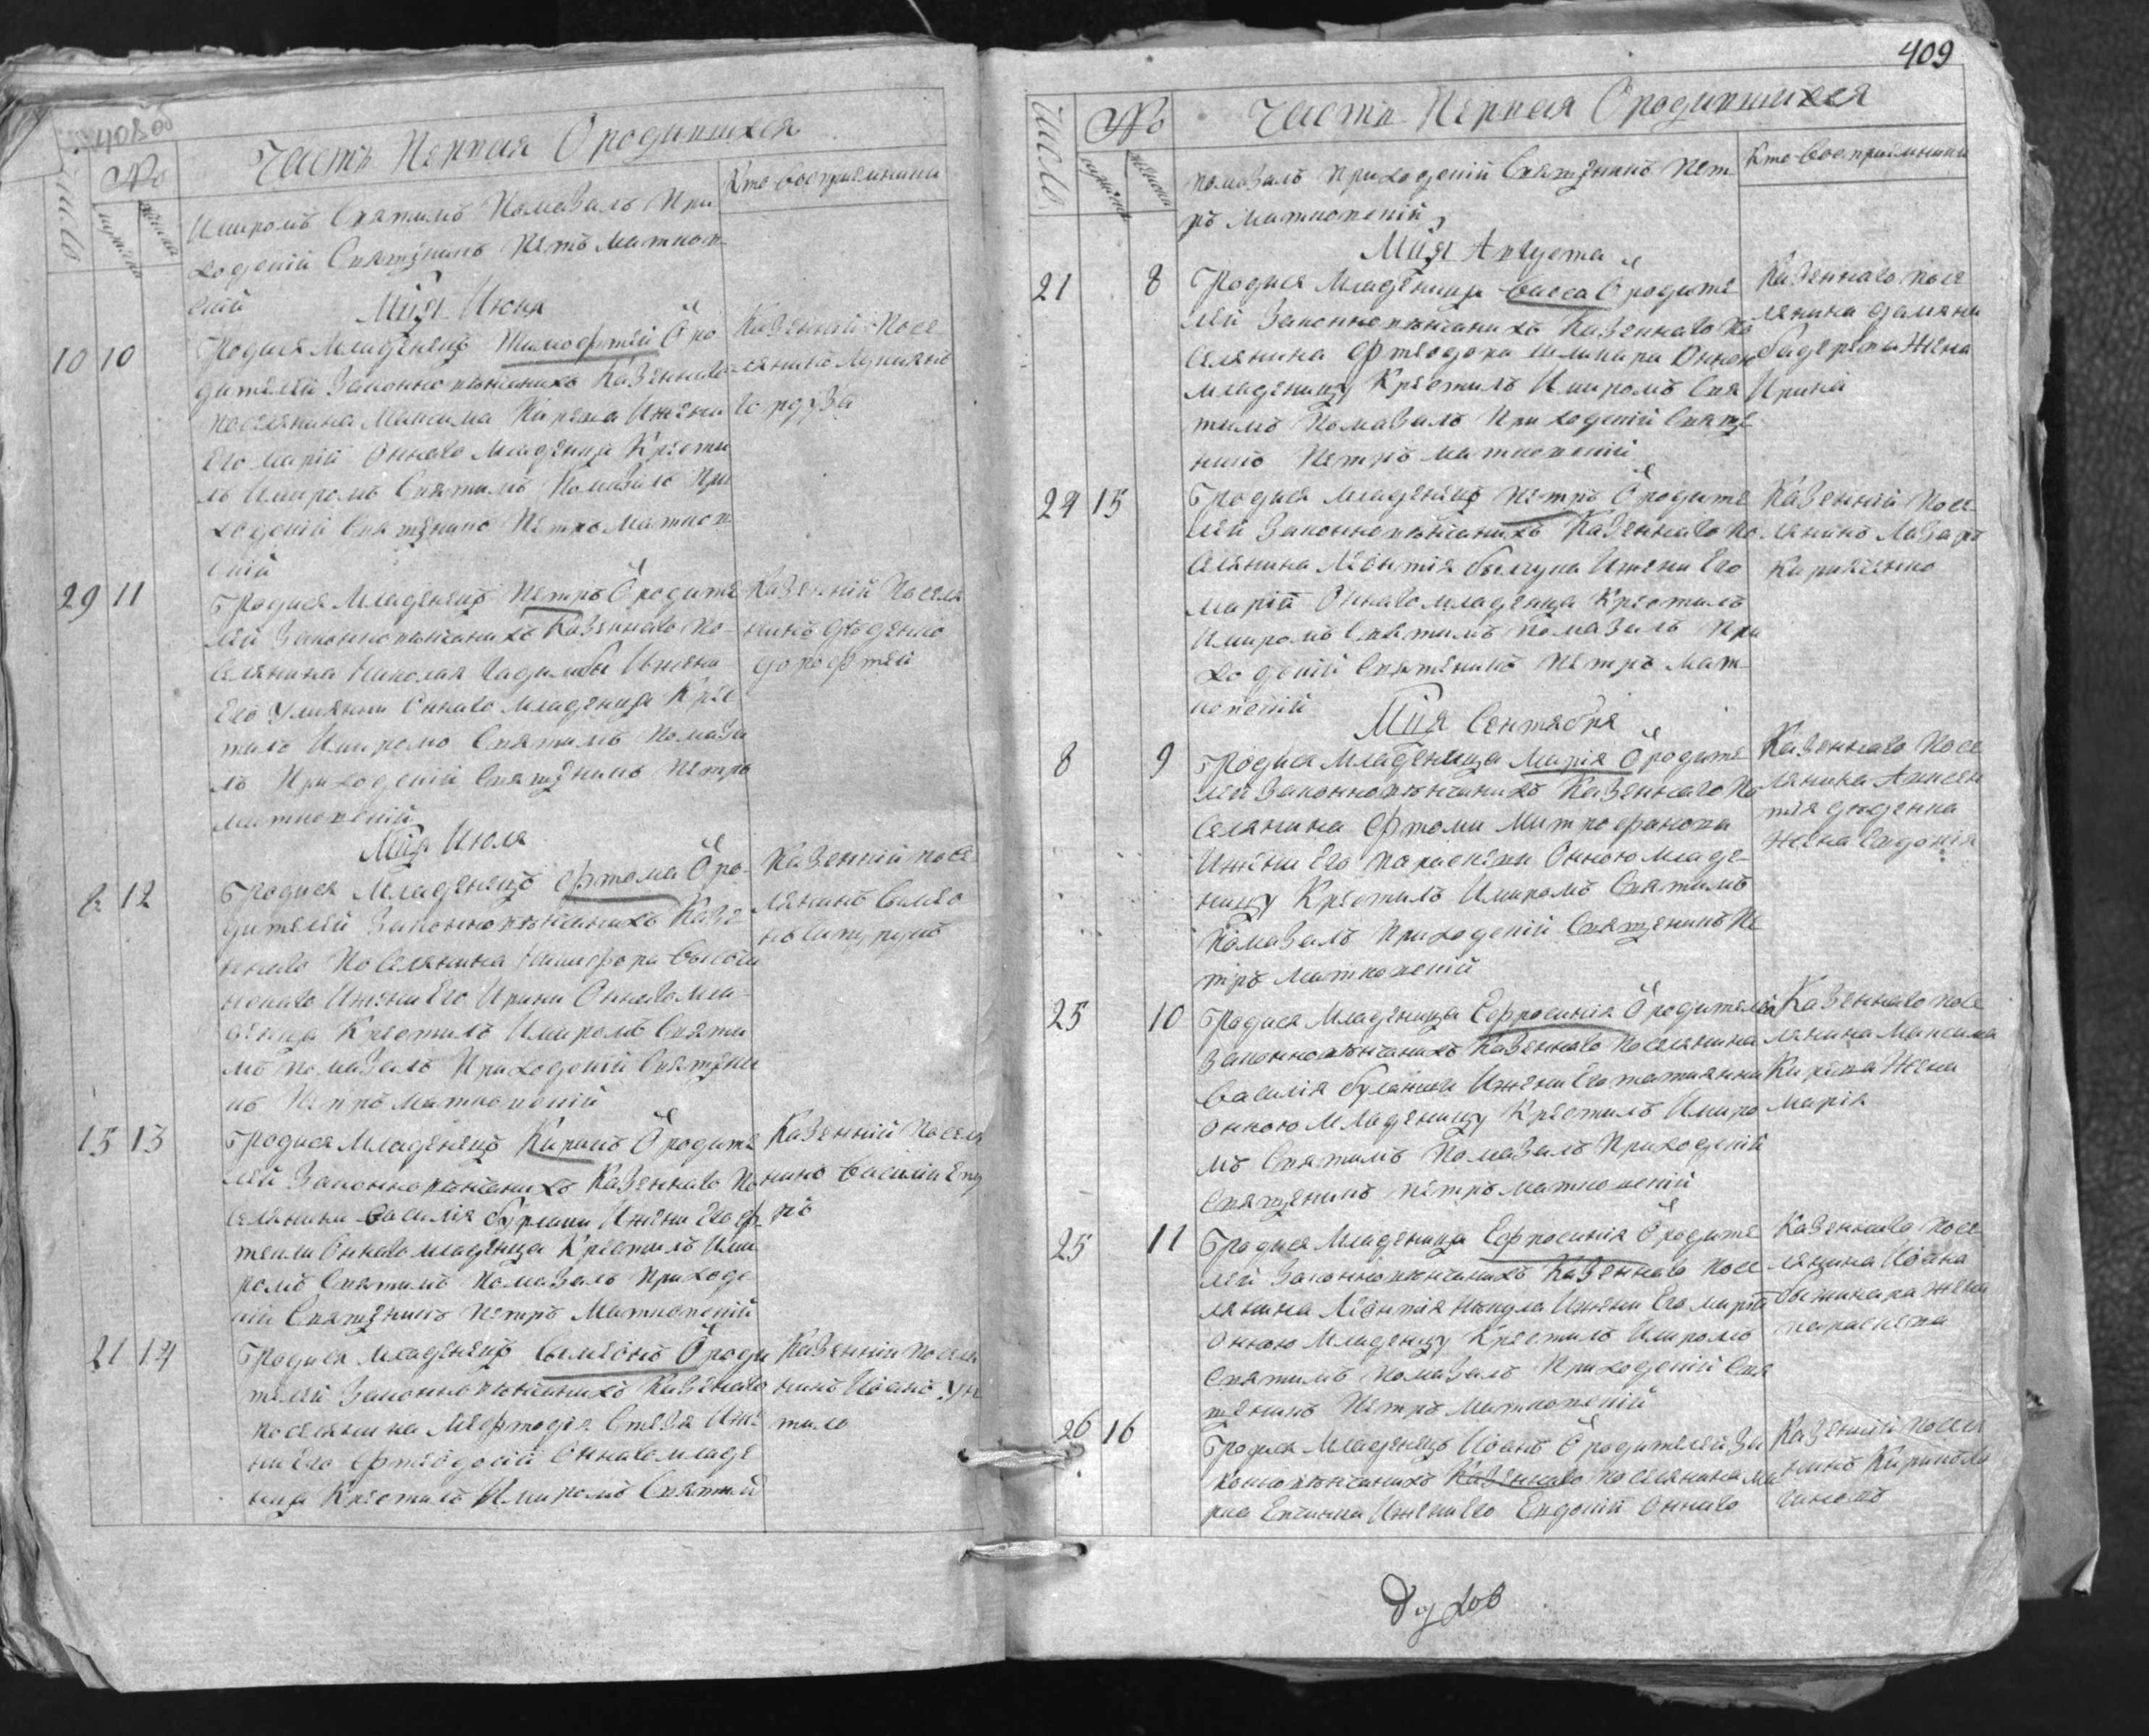 408 об
Часть Первая О родившихся
Число
№
Кто восприемники
Имиромъ Святимъ Помазалъ При
ходский Священикъ Петъ Матков
ский
Мця Июня
10 10 Родися Младенецъ Тимофтей Ѿ ро
дителей Законновѣнчанихъ Казеннаго
поселянина Максима Кирева Ижени
Его Марій Оннаго Младенца Крести
лъ Имиромъ Святимъ Помазалъ При
ходский Священикъ Петръ Матков
ский
Казенний Посе
лянинъ Лукиянъ
29 11 Родися Младенецъ Петръ Ѿ родите
лей Законновѣнчанихъ Казеннаго По
селянина Николая Ижени
Его Улияни Оннаго Младенца Крес
тилъ Имиромъ Святимъ Помаза
лъ Приходский Священикъ Петръ
Матковский
Казенний Поселя
нинъ
дорофтей
Мця Июля
12 Родися Младенецъ Фтома Ѿ ро
дителей Законновѣнчанихъ Казе
ннаго Поселянина Никифора
Ижени Его Ирини Оннаго Мла
денца Крестилъ Имиромъ Святи
мъ помазалъ Приходский Священи
къ Петръ Матковский
Казенний посе
лянинъ Симео
нъ
15 13 Родися Младенецъ Кирилъ Ѿ родите
лей Законновѣнчанихъ Казеннаго По
селянина Василія Ижени Его Ф
текли Оннаго младенца Крестилъ Ими
ромъ Святимъ Помазалъ Приход
ский Священикъ Петръ Матковский
Казенний Поселя
нинъ Василій
21 14 Родися Младенецъ Симеонъ Ѿ роди
телей Законновѣнчанихъ Казеннаго
поселянина Мефтодія Ижe
ни Его Фтеодосій Оннаго младе
нца Крестилъ Имиромъ Святим
Казенний Поселя
нинъ Иоанъ
409
Часть Первая О родившихся
Число
№
Кто восприемники
помазалъ Приходский Священикъ Пет
ръ Матковский
Мця Августа
21 8 Родися Младеница Васса Ѿ родите
лей Законновѣнчанихъ Казеннаго По
селянина Фтеодора Онною
младеницу Крестилъ Имиромъ Свя
тимъ Помазалъ Приходский Свяще
никъ Петръ Матковский
Казеннаго посе
лянина Дамяна
Жена
Ирина
24 15 Родися младенецъ Петръ Ѿ родите
лей Законновѣнчанихъ Казеннаго По
селянина Леонтія Ижени Его
Марій Оннаго младенца Крестилъ
Имиромъ Святимъ помазалъ При
ходский Священикъ Петръ Мат
ковский
Казенний Посе
лянинъ Лазаръ
Кириченко
Мця Сентября
8 9 Родися Младеница Марія Ѿ родите
лей Законновѣнчанихъ Казеннаго По
селянина Фтоми Митрофанова
Ижени Его Параскеви Онною младе
ницу Крестилъ Имиромъ Святимъ
Помазалъ Приходский Священикъ Пе
тръ Матковский
Казеннаго Посе
лянина Авксен
тія
Жена Евдокія
25 10 Родися Младеница Ефросинія Ѿ родителей
Законновѣнчанихъ Казеннаго Поселянина
Василія Ижени Его татиянни
Онною Младеницу Крестилъ Имиро
мъ Святимъ Помазалъ Приходский
Священикъ Петръ Матковский
Казеннаго посе
лянина Максима
Кирева Жена
Марія
25 11 Родися Младеница Ефросинія Ѿ родите
лей Законновѣнчанихъ Казеннаго Посе
лянина Леонтія Някула Ижени Его Марій
Онною Младеницу Крестилъ Имиромъ
Святимъ Помазалъ Приходский Свя
щеникъ Петръ Матковский
Казеннаго Посе
лянина Иоана
Жена
параскева
26 16 Родися Младенецъ Иоанъ Ѿ родителей За
конновѣнчанихъ Казеннаго поселянина Ма
рка Ижени Его Евдокій Оннаго
Казенний Посел
янинъ Кирилъ